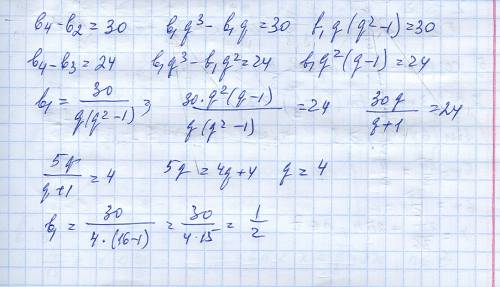 b₄-b₂=30   b₁q³-b₁q=30   b₁q(q²-1)=30
b₄-b₃=24   b₁q³-b₁q²=24   b₁q²(q-1)=24
b₁=30/(q(q²-1));   30·q²(q-1)/(q(q²-1))=24   30q/(q+1)=24
5q/(q+1)=4   5q=4q+4   q=4
b₁=30/(4·(16-1))=30/(4·15)=1/2